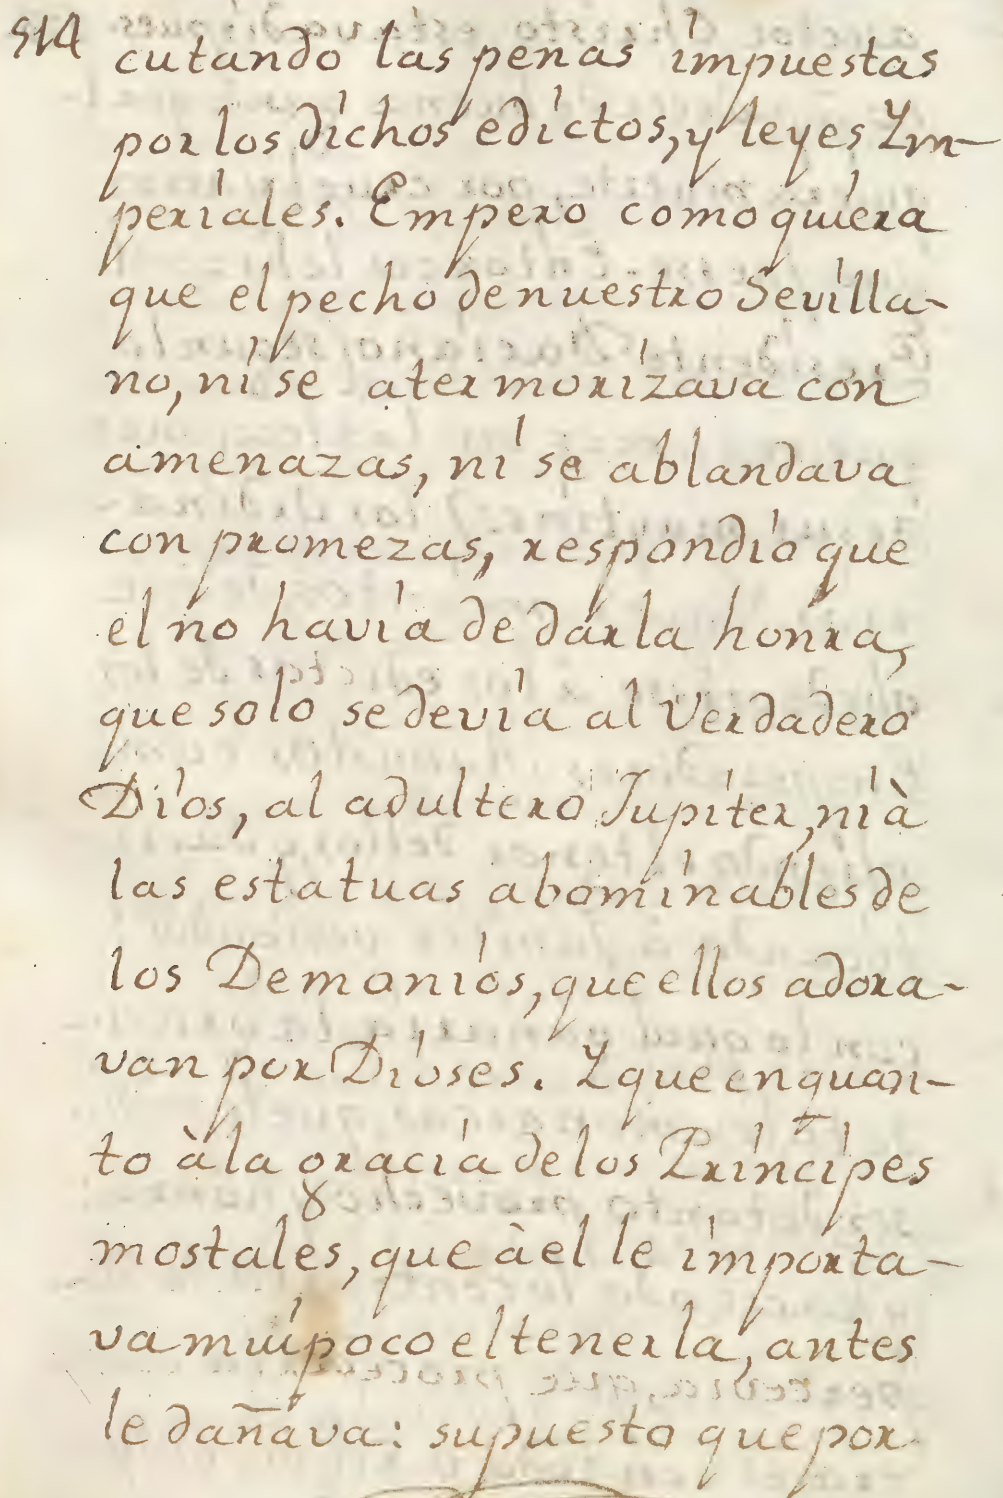 514
cutando las penas impuestas
por los dichos edictos, y leyes Ym-
periales. Empero como quiera
que el pecho de nuestro Sevilla-
no, ni se atermorizava con
amenazas, ni se ablandava
con promezas, respondio que
el no havia de dar la honra,
que solo se devia al Verdadero
Dios, al adultero Jupiter, ni à
las estatuas abominables de
los Demonios, que ellos adora-
van por Dioses. Y que en quan-
to à la gracia de los Principes
mostales, que à el le importa-
va mui poco el tenerla, antes
le dañava: supuesto que por